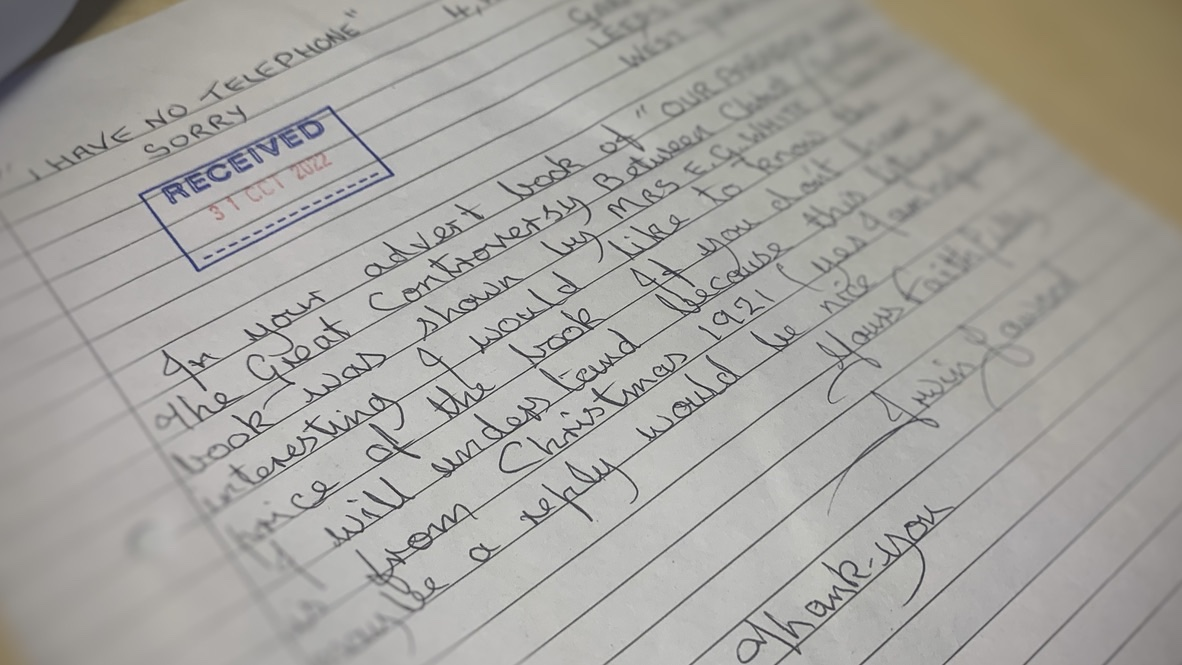 "I HAVE NO TELEPHONE"
SORRY
LEEDS
WEST
RECEIVED
31 OCT 2022
In your advert book of "OUR
The Great Controversy Between Christ
book was shown by MRS E.G. WHITE
interesting I would like to know the
price of the book If you don't know
I will understand because this
is from Christmas 1921 (yes I am
maybe a reply would be nice
Yours Faithfully
Thank-you